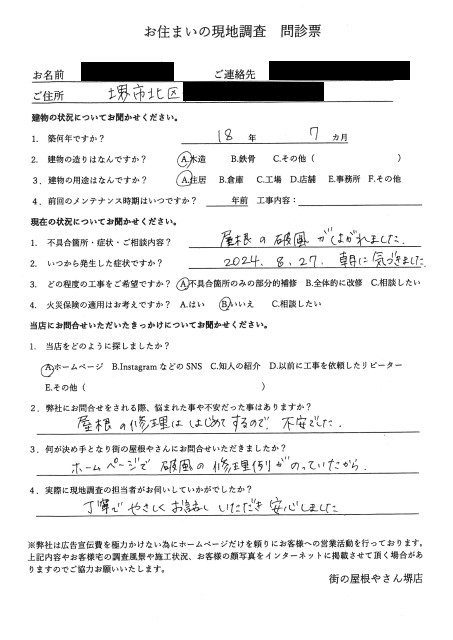 お住まいの現地調査　問診票
お名前　ご連絡先
ご住所　堺市北区
建物の状況についてお聞かせください。
1. 築何年ですか？　18 年　7 カ月
2. 建物の造りはなんですか？　A.木造　B.鉄骨　C.その他（　）
3. 建物の用途はなんですか？　A.住居　B.倉庫　C.工場　D.店舗　E.事務所　F.その他
4. 前回のメンテナンス時期はいつですか？　年前　工事内容：
現在の状況についてお聞かせください。
1. 不具合箇所・症状・ご相談内容？　屋根の破風がはがれました.
2. いつから発生した症状ですか？　2024. 8. 27. 朝に気づきました
3. どの程度の工事をご希望ですか？　A.不具合箇所のみの部分的補修　B.全体的に改修　C.相談したい
4. 火災保険の適用はお考えですか？　A.はい　B.いいえ　C.相談したい
当店にお問合せいただいたきっかけについてお聞かせください。
1. 当店をどのように探しましたか？
A.ホームページ　B.InstagramなどのSNS　C.知人の紹介　D.以前に工事を依頼したリピーター
E.その他（　）
2. 弊社にお問合せをされる際、悩まれた事や不安だった事はありますか？
屋根の修理ははじめてするので、不安でした.
3. 何が決め手となり街の屋根やさんにお問合せいただきましたか？
ホームページで破風の修理例がのっていたから.
4. 実際に現地調査の担当者がお伺いしていかがでしたか？
丁寧でやさしくお話しいただき安心しました
※弊社は広告宣伝費を極力かけない為にホームページだけを頼りにお客様への営業活動を行っております。
上記内容やお客様宅の調査風景や施工状況、お客様の顔写真をインターネットに掲載させて頂く場合があ
りますのでご協力お願いいたします。
街の屋根やさん堺店